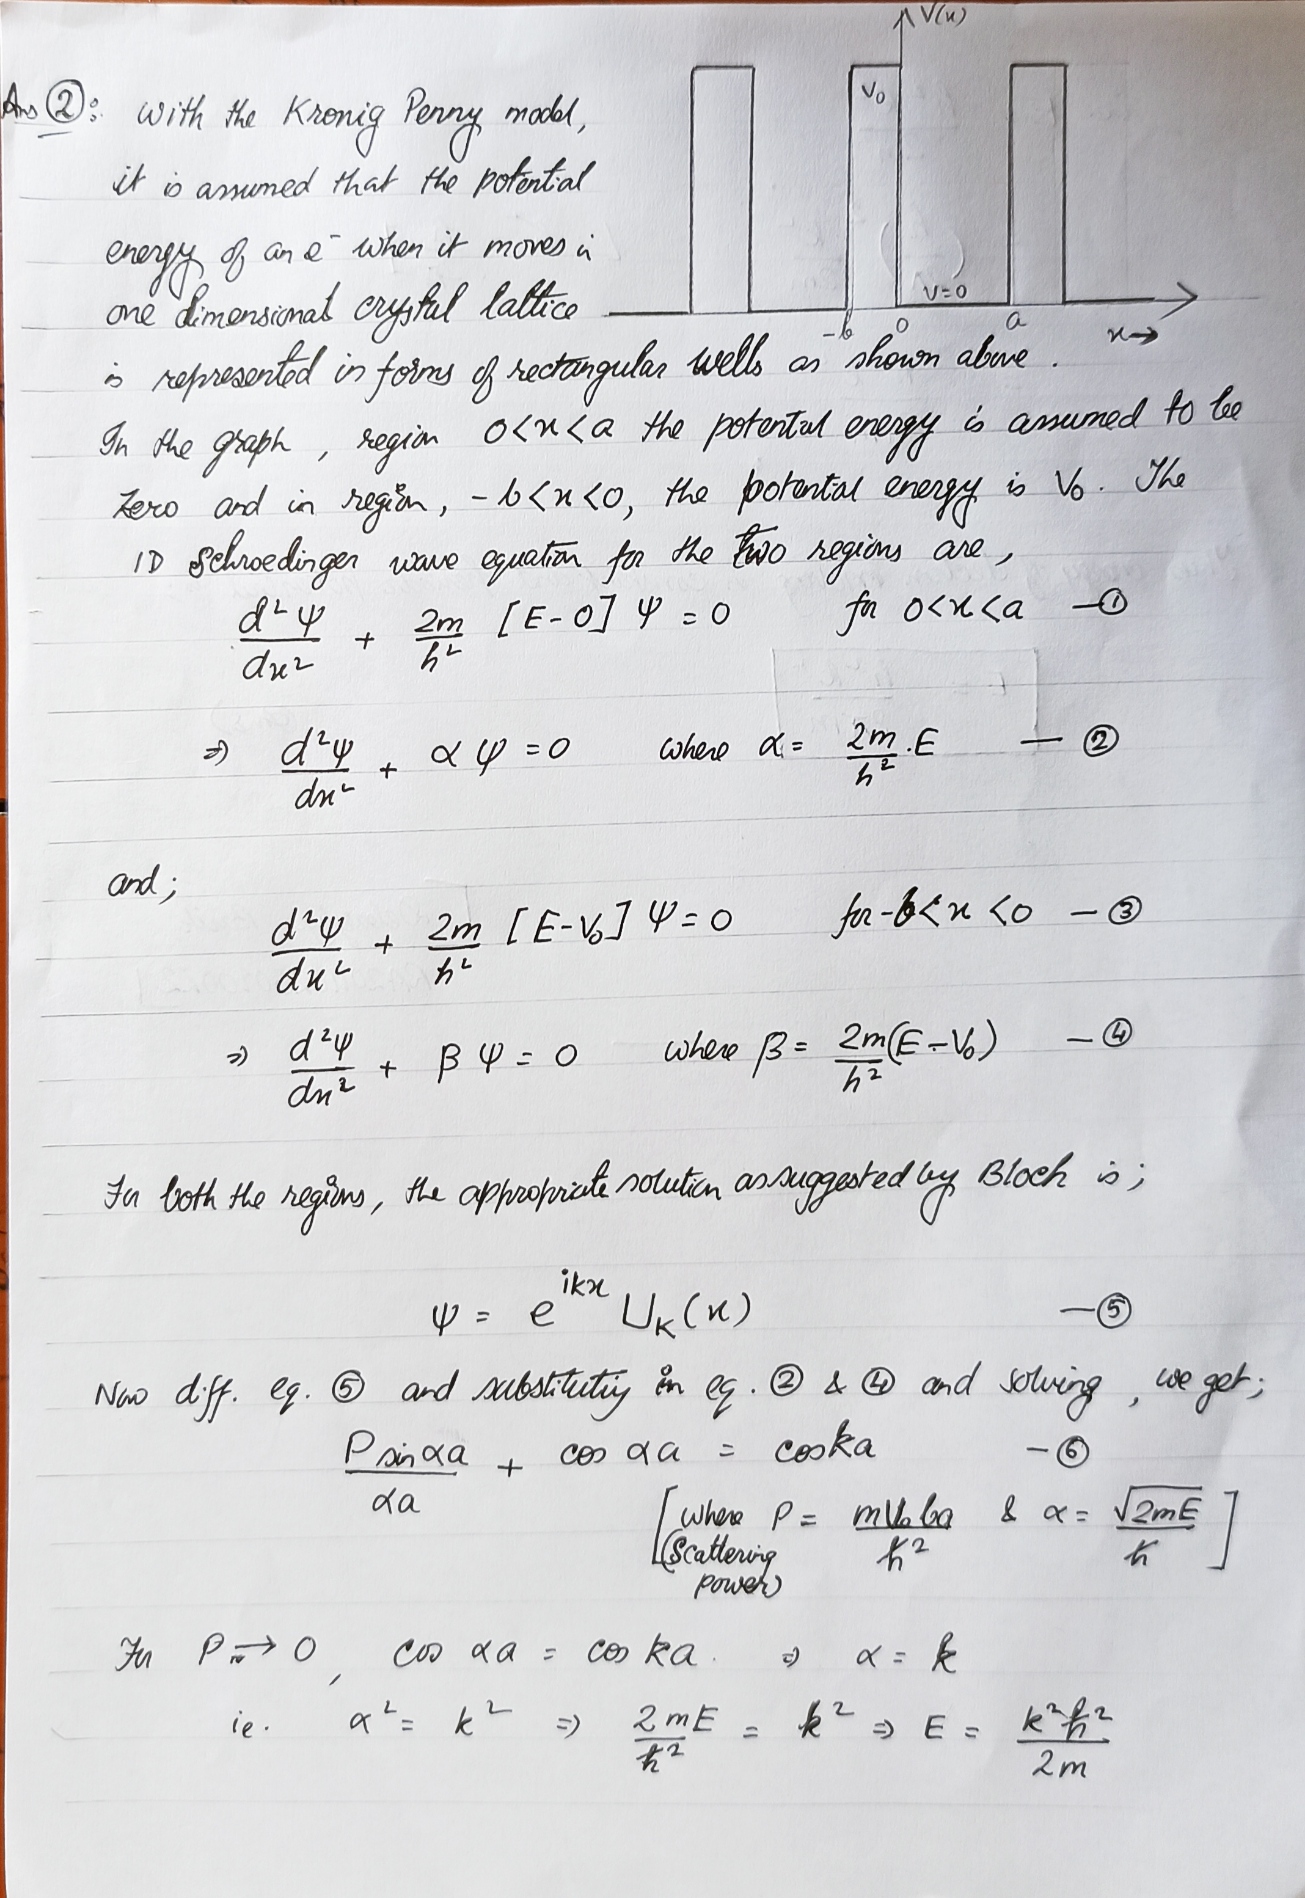 V(x)
Ans ②: With the Kronig Penny model,
V₀
it is assumed that the potential
energy of an e⁻ when it moves in
V=0
one dimensional crystal lattice
-b 0 a x→
is represented in forms of rectangular wells as shown above.
In the graph, region 0<x<a the potential energy is assumed to be
zero and in region, -b<x<0, the potental energy is V₀. The
1D Schroedinger wave equation for the two regions are,
d²ψ/dx² + 2m/ħ² [E-0] ψ = 0 for 0<x<a —①
⇒ d²ψ/dx² + αψ = 0 where α = 2m/ħ² .E —②
and;
d²ψ/dx² + 2m/ħ² [E-V₀] ψ = 0 for -b<x<0 —③
⇒ d²ψ/dx² + βψ = 0 where β = 2m/ħ² (E-V₀) —④
For both the regions, the appropriate solution as suggested by Bloch is;
ψ = e^{ikx} U_K(x) —⑤
Now diff. eq. ⑤ and substituting in eq. ② & ④ and solving, we get;
P sin αa/αa + cos αa = cos ka —⑥
[where P = mV₀ba/ħ² & α = √2mE/ħ]
(Scattering
power)
For P → 0, cos αa = cos ka. ⇒ α = k
ie. α² = k² ⇒ 2mE/ħ² = k² ⇒ E = k²ħ²/2m